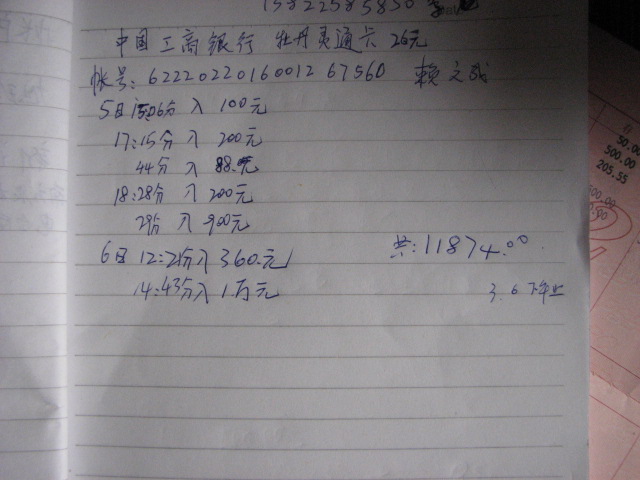 中国工商银行 牡丹灵通卡 26元
帐号: 6222022016001267560 赖文
5日15:06分入 100元
17:15分入 200元
44分入 88.元
18:28分入 200元
29分入 900元
6日 12:2分入 360.元
共:11874.00
14:43分入 1万元
3.6下午止
50.00
500.00
205.55
500.00